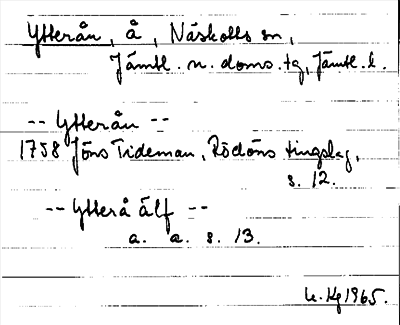 Ytterån, å, Näskotts sn,
Jämtl. n. doms. tg, Jämtl. l.
-- Ytterån --
1758 Jöns Tideman, Rödöns tingslag,
s. 12.
-- Ytterå älf --
a. a. s. 13.
1965.